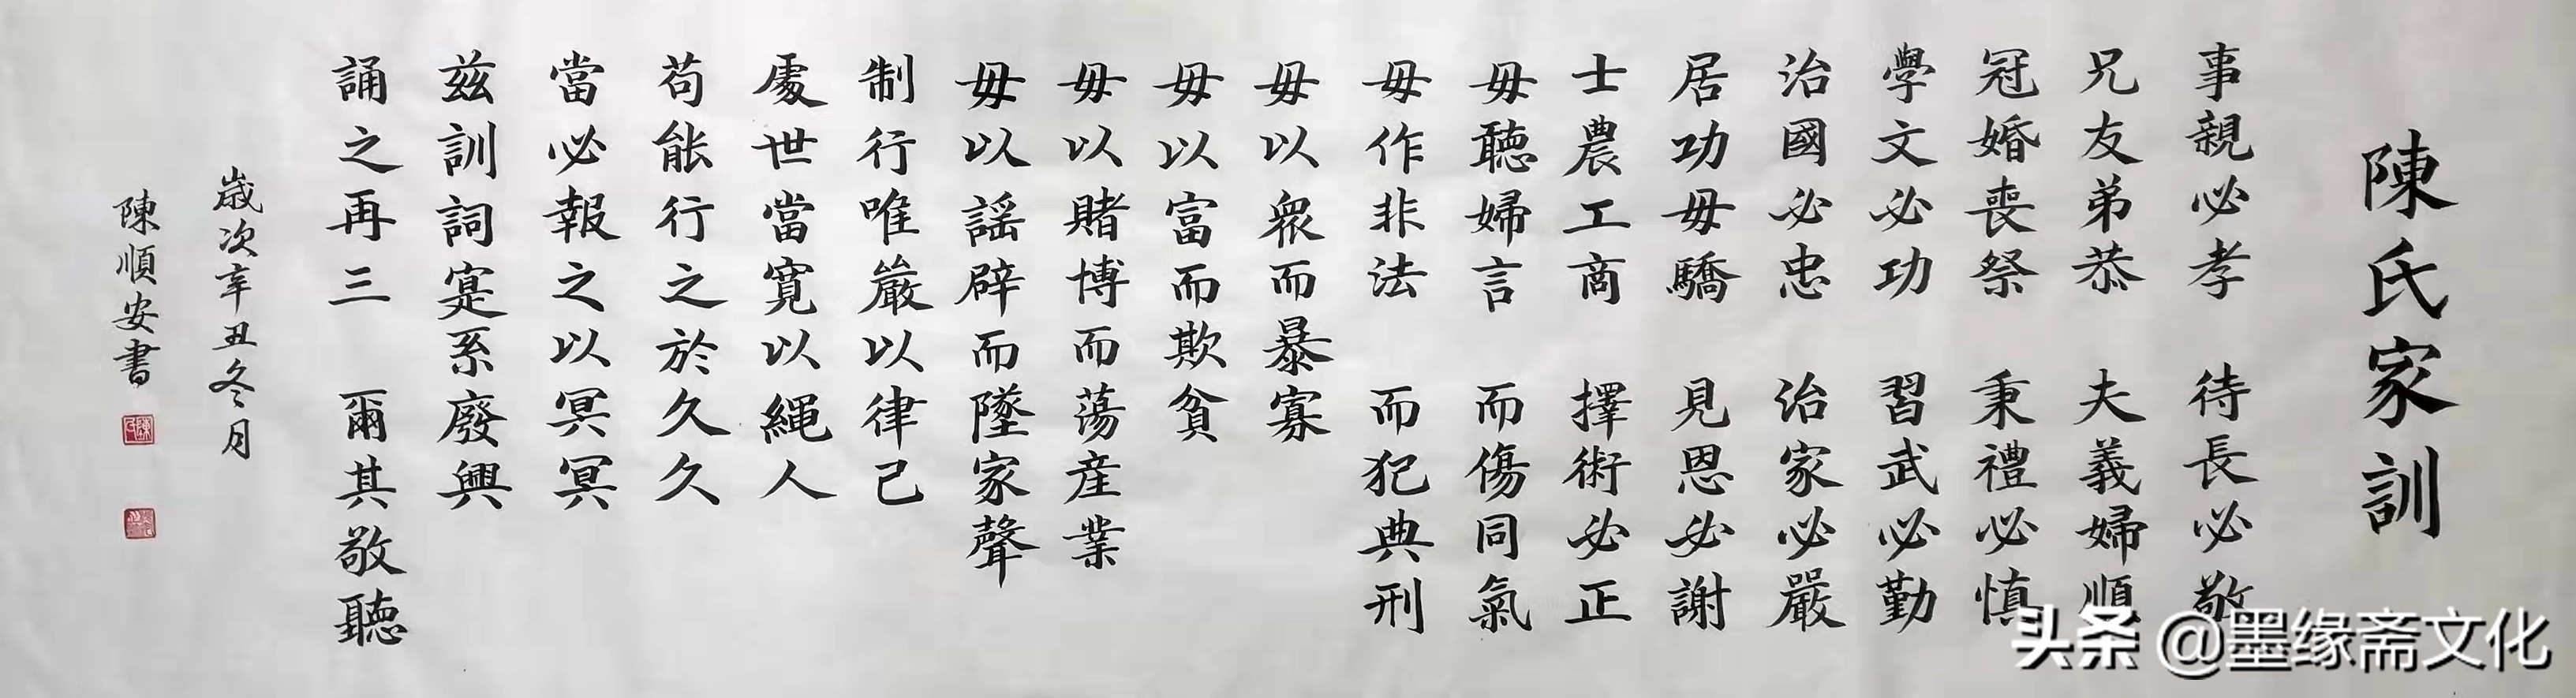 陳氏家訓
事親必孝 待長必敬
兄友弟恭 夫義婦順
冠婚喪祭 秉禮必慎
學文必功 習武必勤
治國必忠 治家必嚴
居功毋驕 見恩必謝
士農工商 擇術必正
毋聽婦言 而傷同氣
毋作非法 而犯典刑
毋以衆而暴寡
毋以富而欺貧
毋以賭博而蕩産業
毋以謡辟而墜家聲
制行唯嚴以律己
處世當寬以繩人
苟能行之於久久
當必報之以冥冥
兹訓詞寔系廢興
誦之再三 爾其敬聽
歲次辛丑冬月
陳順安書
头条 @墨缘斋文化